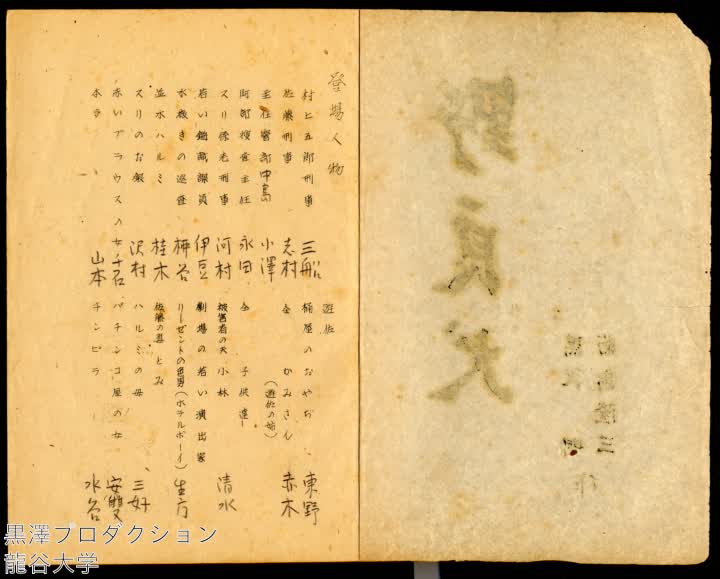 登場人物
村上五郎刑事 三船
佐藤刑事 志村
主任警部中島 小澤
阿部捜査主任 永田
スリ係老刑事 河村
若い鑑識課員 伊豆
水撒きの巡査 柳谷
並木ハルミ 桂木
スリのお銀 沢村
赤いブラウスの女 千石
本多 山本
遊佐
桶屋のおやぢ 東野
仝 かみさん 赤木
(遊佐の姉)
仝 子供達
被害者の夫 小林 清水
劇場の若い演出家
リーゼントの色男(ホテルボーイ) 生方
佐藤の妻 とみ
ハルミの母 三好
パチンコ屋の女
チンピラ 水谷
野良犬
菊島隆三 作
黒澤 明
黒澤プロダクション
龍谷大学